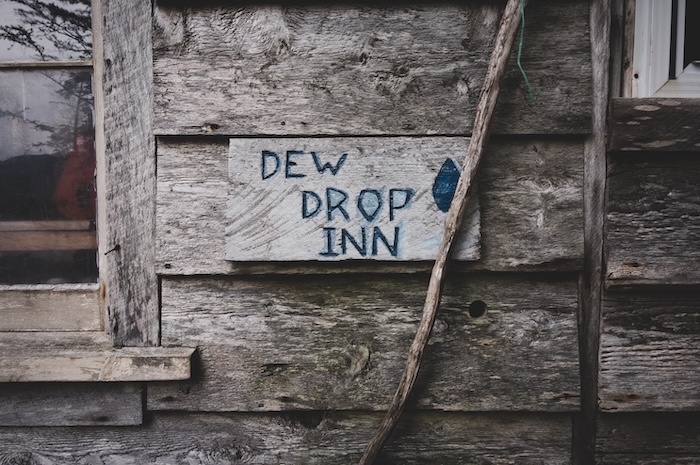 DEW
DROP
INN